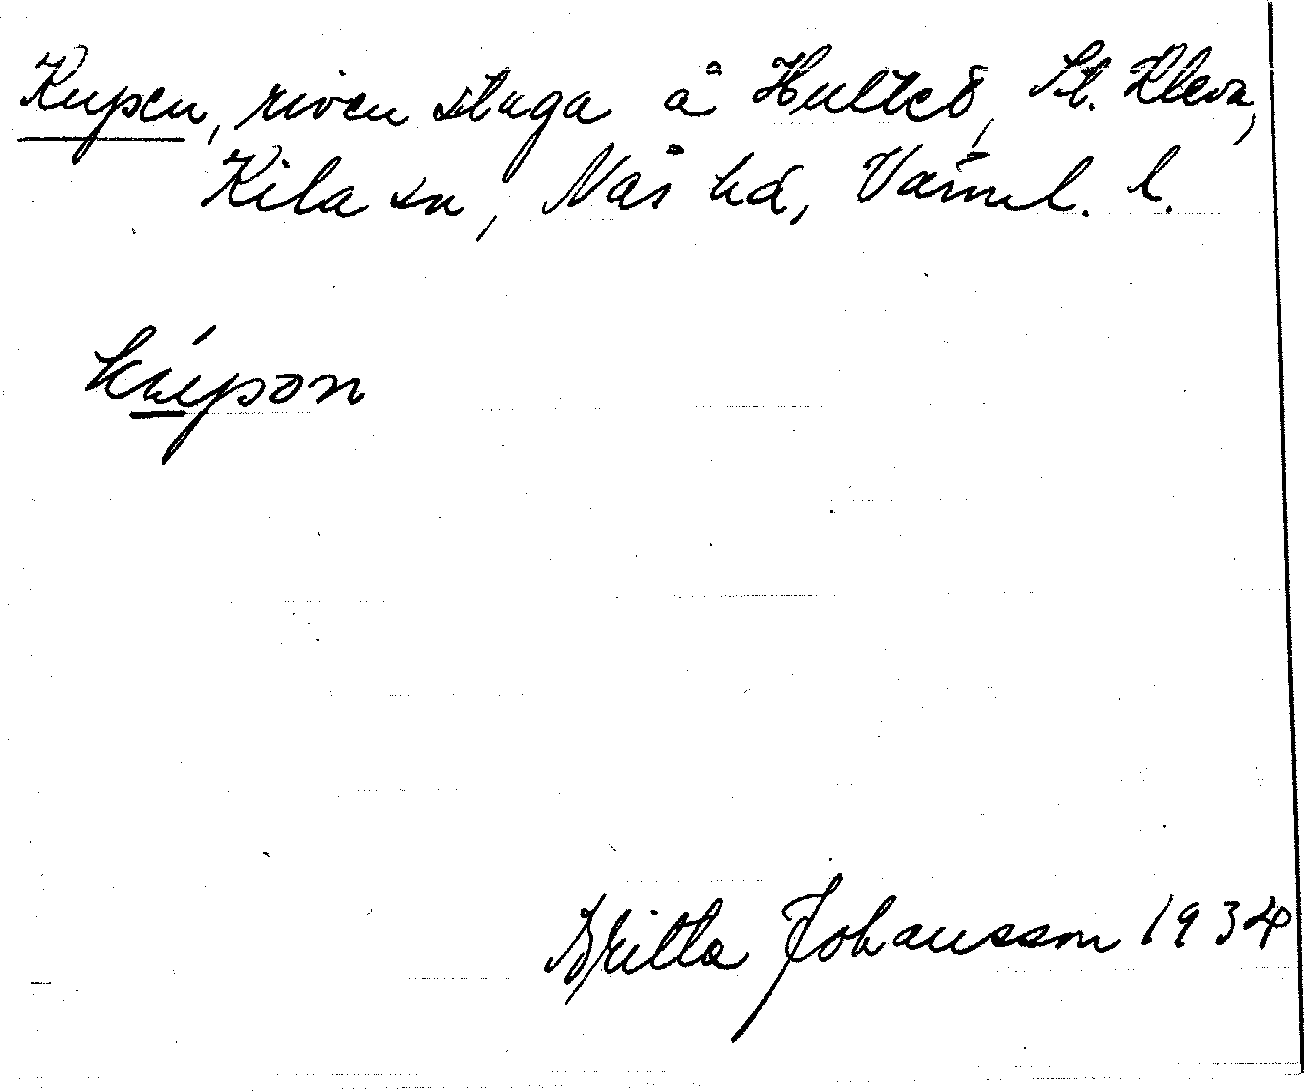 Kupen, riven stuga å Hulteb, St. Kleva,
Kila sn, Näs hd, Värml. l.
kúpon
Britta Johansson 1934